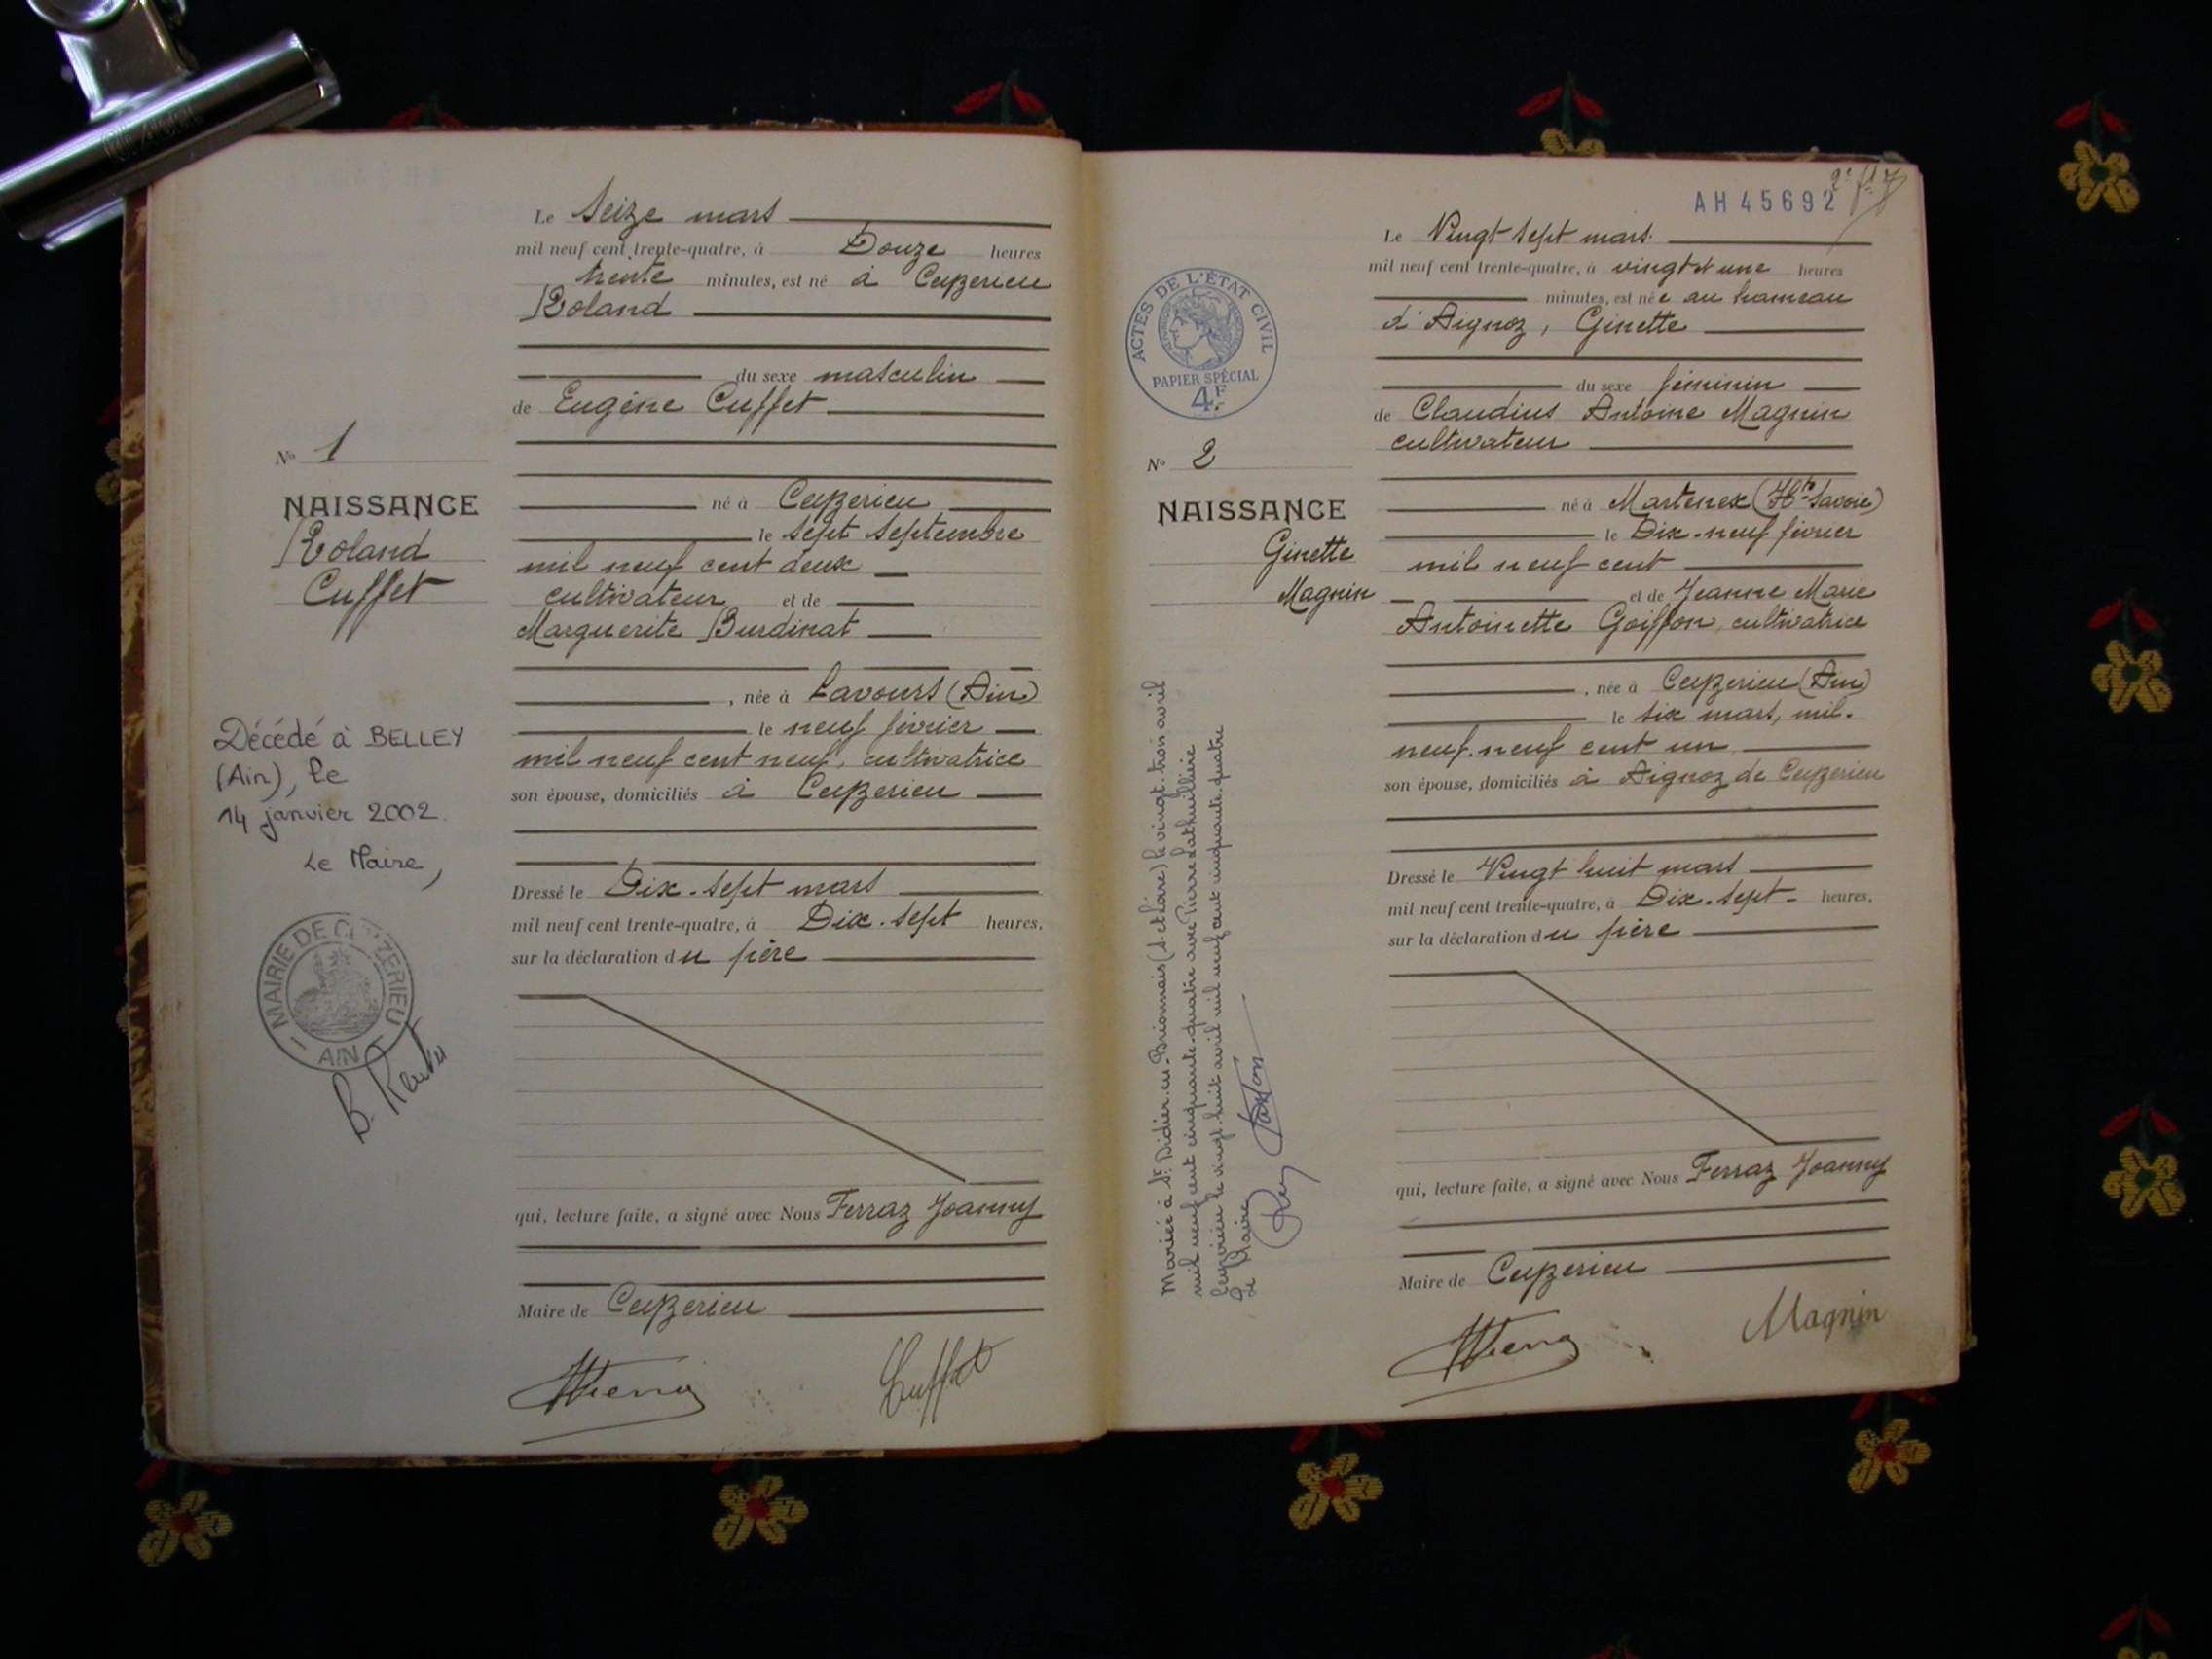 Le Seize mars
mil neuf cent trente-quatre, à Douze heures
trente minutes, est né à Ceyzerieu
Roland
du sexe masculin
de Eugène Cuffet
né à Ceyzerieu
le sept septembre
mil neuf cent deux
cultivateur et de
Marguerite Burdinat
, née à Lavours (Ain)
le neuf février
mil neuf cent neuf, cultivatrice
son épouse, domiciliés à Ceyzerieu
Dressé le Dix-sept mars
mil neuf cent trente-quatre, à Dix-sept heures,
sur la déclaration du père
qui, lecture faite, a signé avec Nous Ferraz Joanny
Maire de Ceyzerieu
Cuffet
No 1
NAISSANCE
Roland
Cuffet
Décédé à BELLEY
(Ain), le
14 janvier 2002.
Le Maire,
MAIRIE DE CEYZERIEU
AIN
AH 45692
Le Vingt sept mars
mil neuf cent trente-quatre, à vingt et une heures
minutes, est née au hameau
d'Aignoz, Ginette
du sexe féminin
de Claudius Antoine Magnin
cultivateur
né à (Hte Savoie)
le Dix-neuf février
mil neuf cent
et de Jeanne Marie
Antoinette Goiffon, cultivatrice
, née à Ceyzerieu (Ain)
le six mars, mil.
neuf.neuf cent un
son épouse, domiciliés à Aignoz de Ceyzerieu
Dressé le Vingt huit mars
mil neuf cent trente-quatre, à Dix-sept- heures,
sur la déclaration du père
qui, lecture faite, a signé avec Nous Ferraz Joanny
Maire de Ceyzerieu
Magnin
ACTES DE L'ÉTAT CIVIL
PAPIER SPÉCIAL
4F
No 2
NAISSANCE
Ginette
Magnin
Mariée à St Didier-en-Brionnais (S. et Loire) le vingt-trois avril
mil neuf cent cinquante-quatre avec Pierre Lathuillière
Ceyzérieu le vingt-huit avril mil neuf cent cinquante-quatre
Le Maire